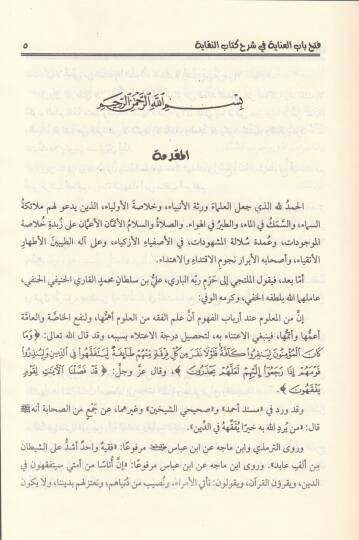 فتح باب العناية في شرح كتاب النقاية ٥
بِسْمِ اللَّهِ الرَّحْمَٰنِ الرَّحِيمِ
المقدمة
الحمدُ لله الذي جعل العلماءَ ورثة الأنبياء، وخلاصةَ الأولياء، الذين يدعو لهم ملائكةُ
السماء، والسَّمَكُ في الماء، والطيرُ في الهواء. والصلاة والسلامُ الأتمّان الأعمّان على زُبدةِ خُلاصة
الموجودات، وعُمدة سُلالة المشهودات، في الأصفياءِ الأزكياء، وعلى آله الطيبينَ الأطهارِ
الأتقياء، وأصحابه الأبرار نجومِ الاقتداء والاهتداء.
أمّا بعد، فيقول الملتجي إلى حَرَمِ ربِّه الباري، عليُّ بن سلطانِ محمدٍ القاري الحَنِيفي الحنفي،
عاملهما الله بلطفه الخفي، وكرمه الوفي:
إنَّ من المعلوم عند أرباب الفهوم أنَّ علم الفقه من العلوم أهمُّها، ولنفع الخاصَّة والعامَّة
أعمُّها وأتمُّها، فينبغي الاعتناء به، لتحصيل درجة الاعتلاء بسببه، وقد قال الله تعالى: ﴿وَمَا
كَانَ ٱلْمُؤْمِنُونَ لِيَنفِرُوا۟ كَآفَّةً فَلَوْلَا نَفَرَ مِن كُلِّ فِرْقَةٍ مِّنْهُمْ طَآئِفَةٌ لِّيَتَفَقَّهُوا۟ فِى ٱلدِّينِ وَلِيُنذِرُوا۟
قَوْمَهُمْ إِذَا رَجَعُوٓا۟ إِلَيْهِمْ لَعَلَّهُمْ يَحْذَرُونَ﴾، وقال عزَّ وجلَّ: ﴿قَدْ فَصَّلْنَا ٱلْءَايَٰتِ لِقَوْمٍ
يَفْقَهُونَ﴾.
وقد ورد في «مسند أحمد» و«صحيحي الشيخين» وغيرهما، عن جَمْعٍ من الصحابة أنه ﷺ
قال: «من يُرِدِ الله به خيرًا يُفَقِّهْهُ في الدِّين».
وروى الترمذي وابن ماجه عن ابن عباس مرفوعًا: «فقيهٌ واحدٌ أشدُّ على الشيطان
مِن ألفِ عابد». وروى ابن ماجه عن ابن عباس مرفوعًا: «إنَّ أُناسًا من أمتي سيتفقهون في
الدين، ويقرؤن القرآن، ويقولون: نأتي الأمراء، ونُصيب من دُنياهم، ونعتزلهم بديننا، ولا يكون